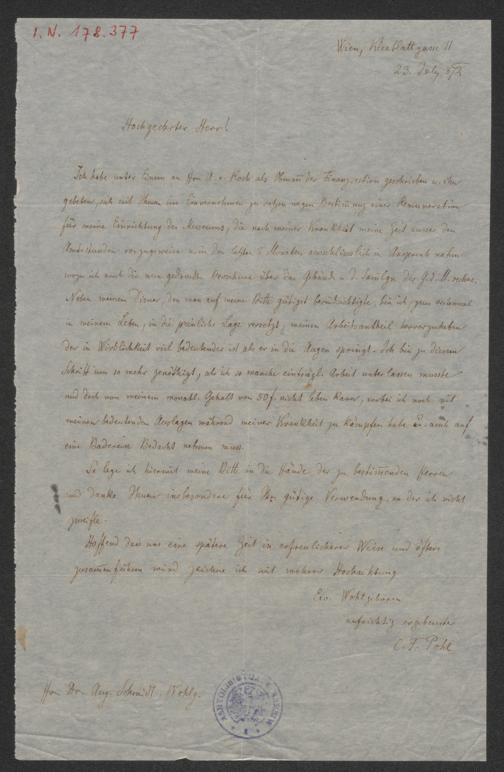 I. N. 178.377
Wien, Kleeblattgasse 11
23. July 872
Hochgeehrter Herr!
Ich habe unter Einem an Hrn A. v. Koch als Obmann der Finanzsection geschrieben u. ihn
gebeten, sich mit Ihnen ins Einvernehmen zu setzen wegen Bestimmung einer Remuneration
für meine Einrichtung des Museums, die nach meiner Krankheit meine Zeit ausser den
Amtsstunden vorzugsweise u. in den letzten Monaten ausschliesslich in Anspruch nahm
wozu ich auch die nun gedruckte Brochure über das Gebäude u. d. Samlgn der G. d. M. rechne.
Neben meinem Diener, den man auf meine Bitte gütigst berücksichtigte, bin ich, zum erstenmal
in meinem Leben, in die peinliche Lage versetzt, meinen Arbeitsantheil hervorzuheben
der in Wirklichkeit viel bedeutender ist als er in die Augen springt. Ich bin zu diesem
Schritt um so mehr genöthigt, als ich so manche einträgl. Arbeit unterlassen musste
und doch von meinem monatl. Gehalt von 50 f. nicht leben kann, wobei ich noch mit
meinen bedeutenden Auslagen während meiner Krankheit zu kämpfen habe u. auch auf
eine Badereise Bedacht nehmen muss.
So lege ich hiermit meine Bitte in die Hände der zu bestimmenden Herren
und danke Ihnen insbesondere für Ihre gütige Verwendung, an der ich nicht
zweifle.
Hoffend dass uns eine spätere Zeit in erfreulicherer Weise und öfters
zusammenführen wird zeichne ich mit wahrer Hochachtung
Euer Wohlgeboren
aufrichtig ergebenster
C. F. Pohl
Hrn Dr. Aug. Schmidt, Wohlg.